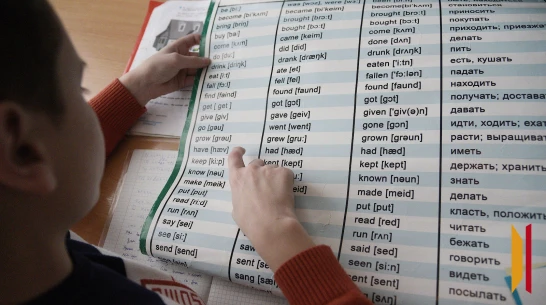 be [bi:] was [wɒz], were [wɜ:] been [bi:n] быть
become [bi'kʌm] became [bi'keim] become [bi'kʌm] становиться
bring [briŋ] brought [brɔ:t] brought [brɔ:t] приносить
buy [bai] bought [bɔ:t] bought [bɔ:t] покупать
come [kʌm] came [keim] come [kʌm] приходить; приезжать
do [du:] did [did] done [dʌn] делать
drink [driŋk] drank [dræŋk] drunk [drʌŋk] пить
eat [i:t] ate [et] eaten ['i:tn] есть, кушать
fall [fɔ:l] fell [fel] fallen ['fɔ:lən] падать
find [faind] found [faund] found [faund] находить
get [get] got [gɒt] got [gɒt] получать; достава
give [giv] gave [geiv] given ['giv(ə)n] давать
go [gəu] went [went] gone [gɒn] идти, ходить, еха
grow [grəu] grew [gru:] grown [grəun] расти; выращиват
have [hæv] had [hæd] had [hæd] иметь
keep [ki:p] kept [kept] kept [kept] держать; хранить
know [nəu] known [nəun] знать
make [meik] made [meid] делать
put [put] put [put] класть, положить
read [ri:d] read [red] читать
run [rʌn] run [rʌn] бежать
say [sei] said [sed] говорить
see [si:] saw seen [si:n] видеть
send [send] sent sent [sent] посылать
sang [sæŋ]